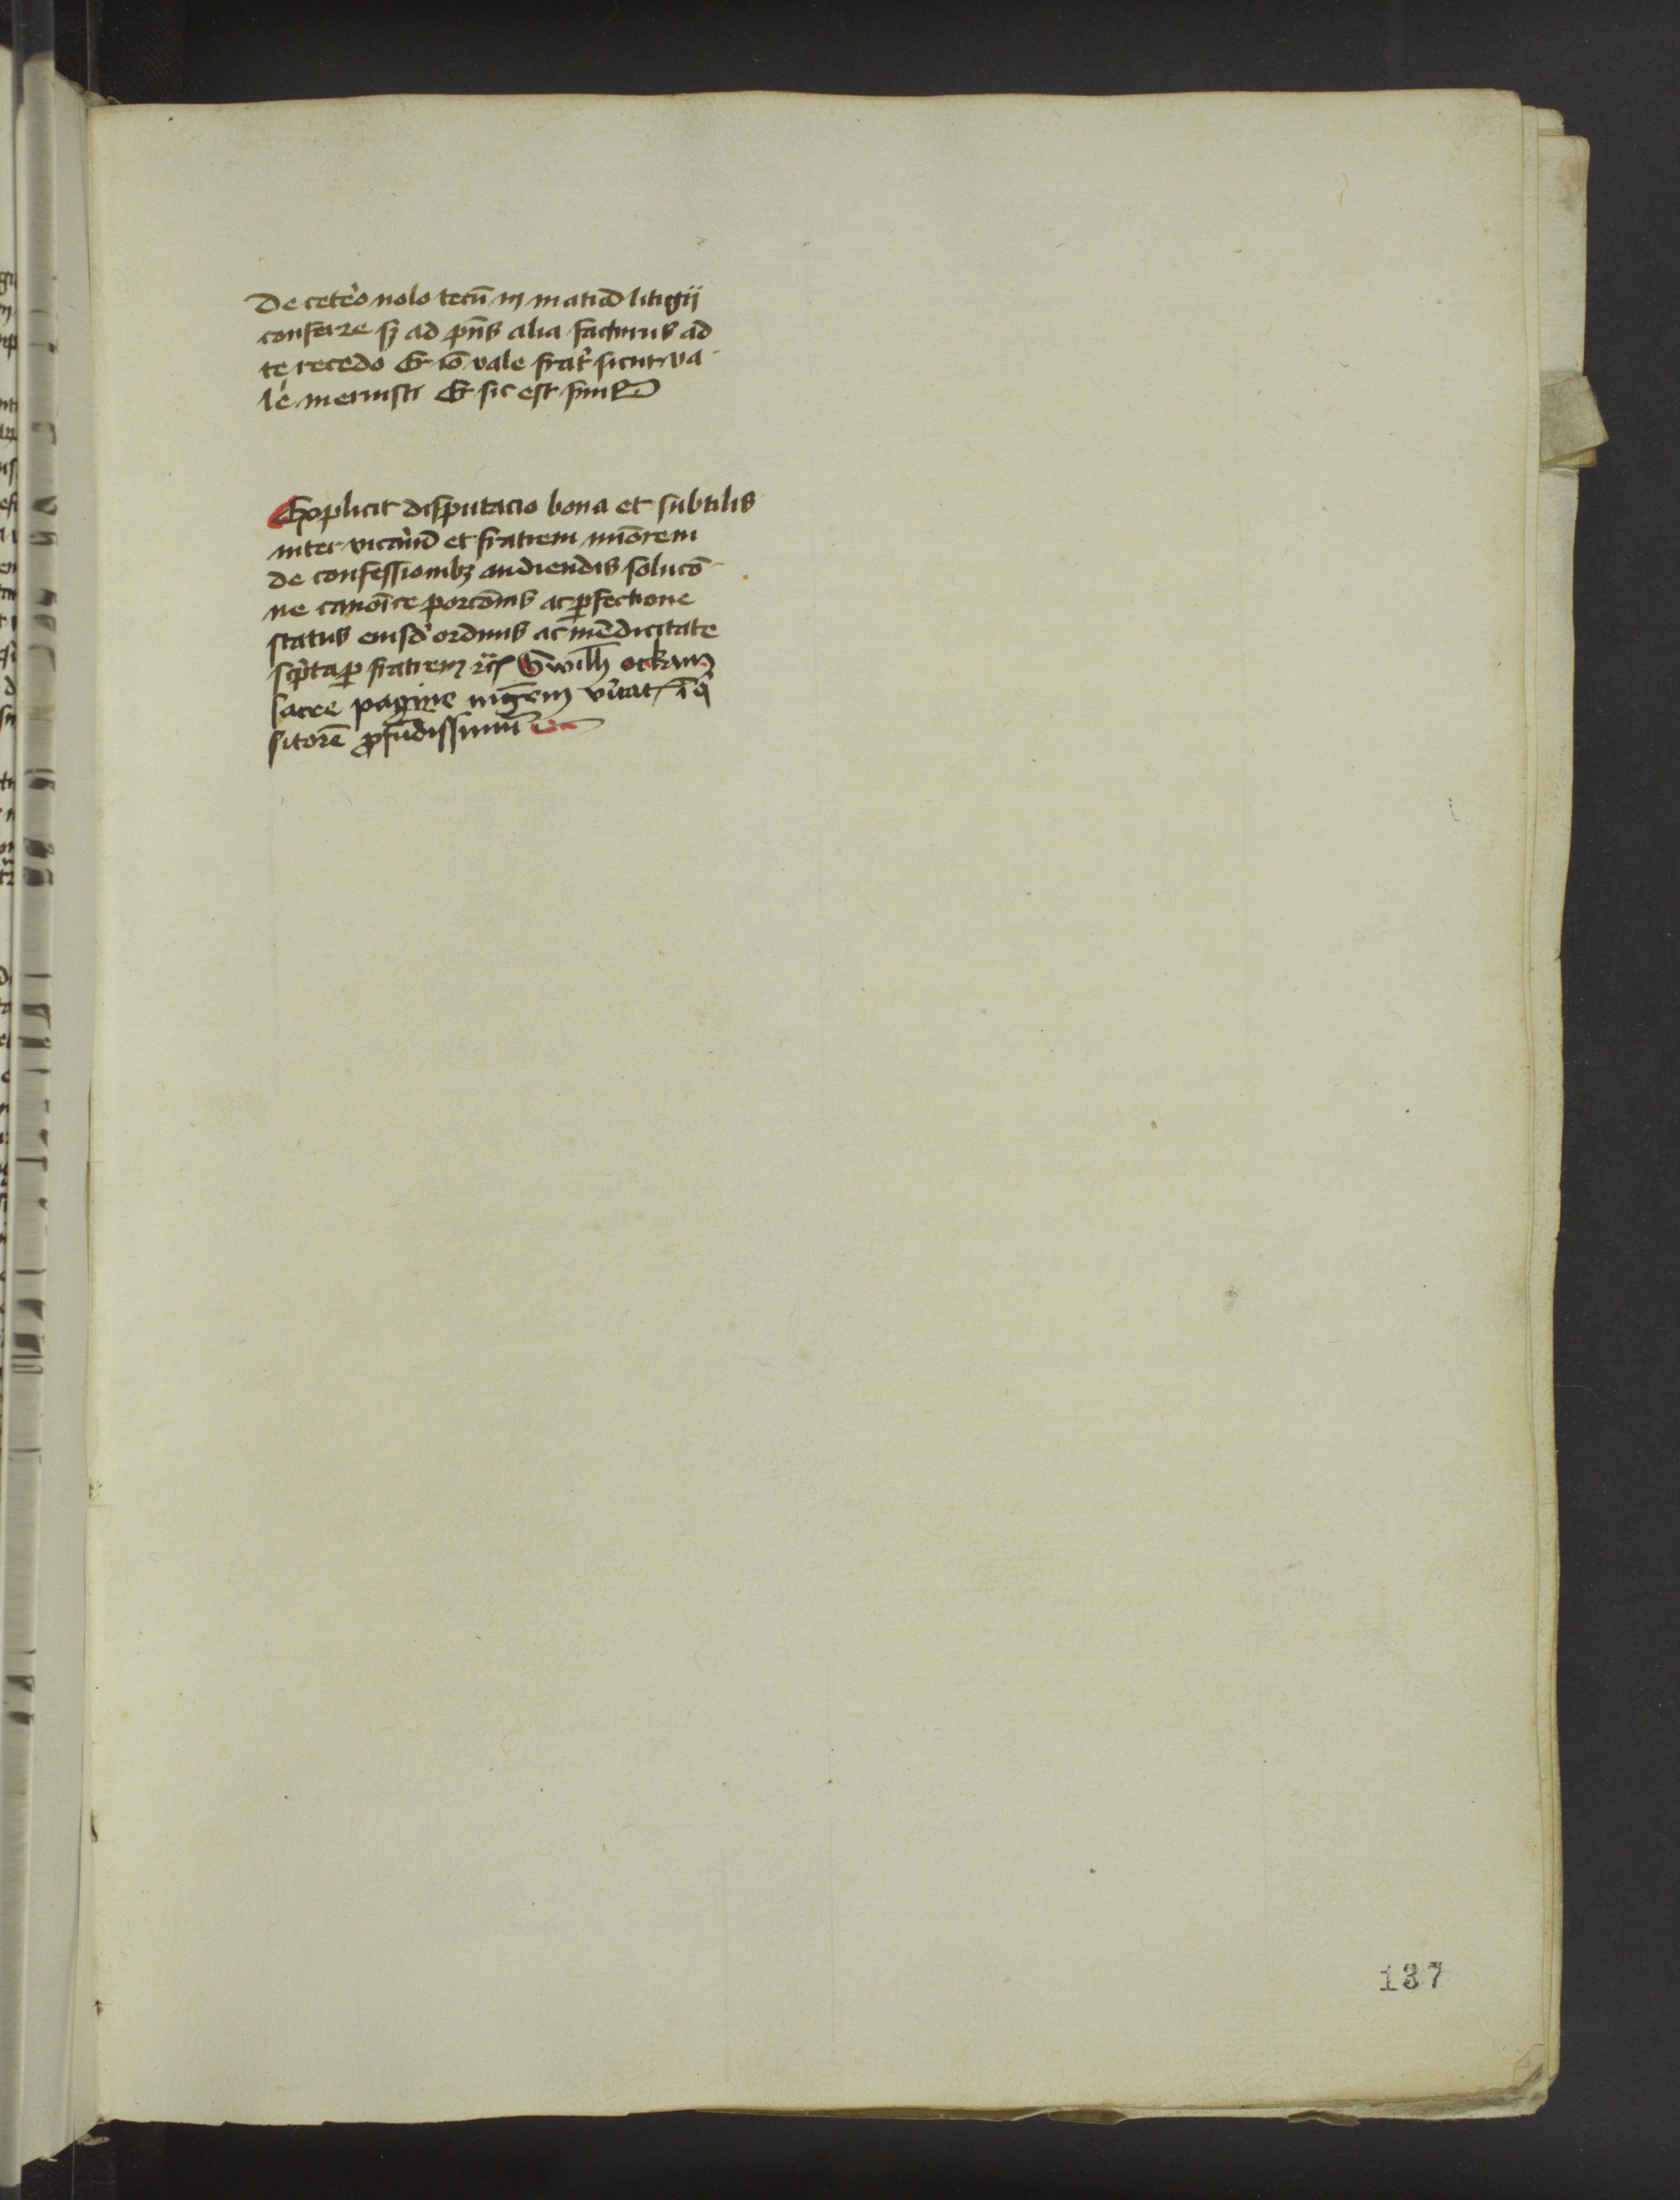 De cetero nolo tecū in mat̄ia litigij
conferre sz ad p̄ns alia facturus ad
te recedo Et iō vale frat̄ sicut va
le meruisti Et sic est finis
Explicit disputacio bona et subtilis
inter vicariū et fratrem minorem
de confessionibz audiendis soluco
ne canonice porcōnis ac ꝑfectione
status eiusd' ordinis ac mēdicitate
scp̄ta ꝑ fratrem Gwilh ockam
sacre pagine mgr̄em v̄itat iq̄
sitorē ꝓfūdissimū
137